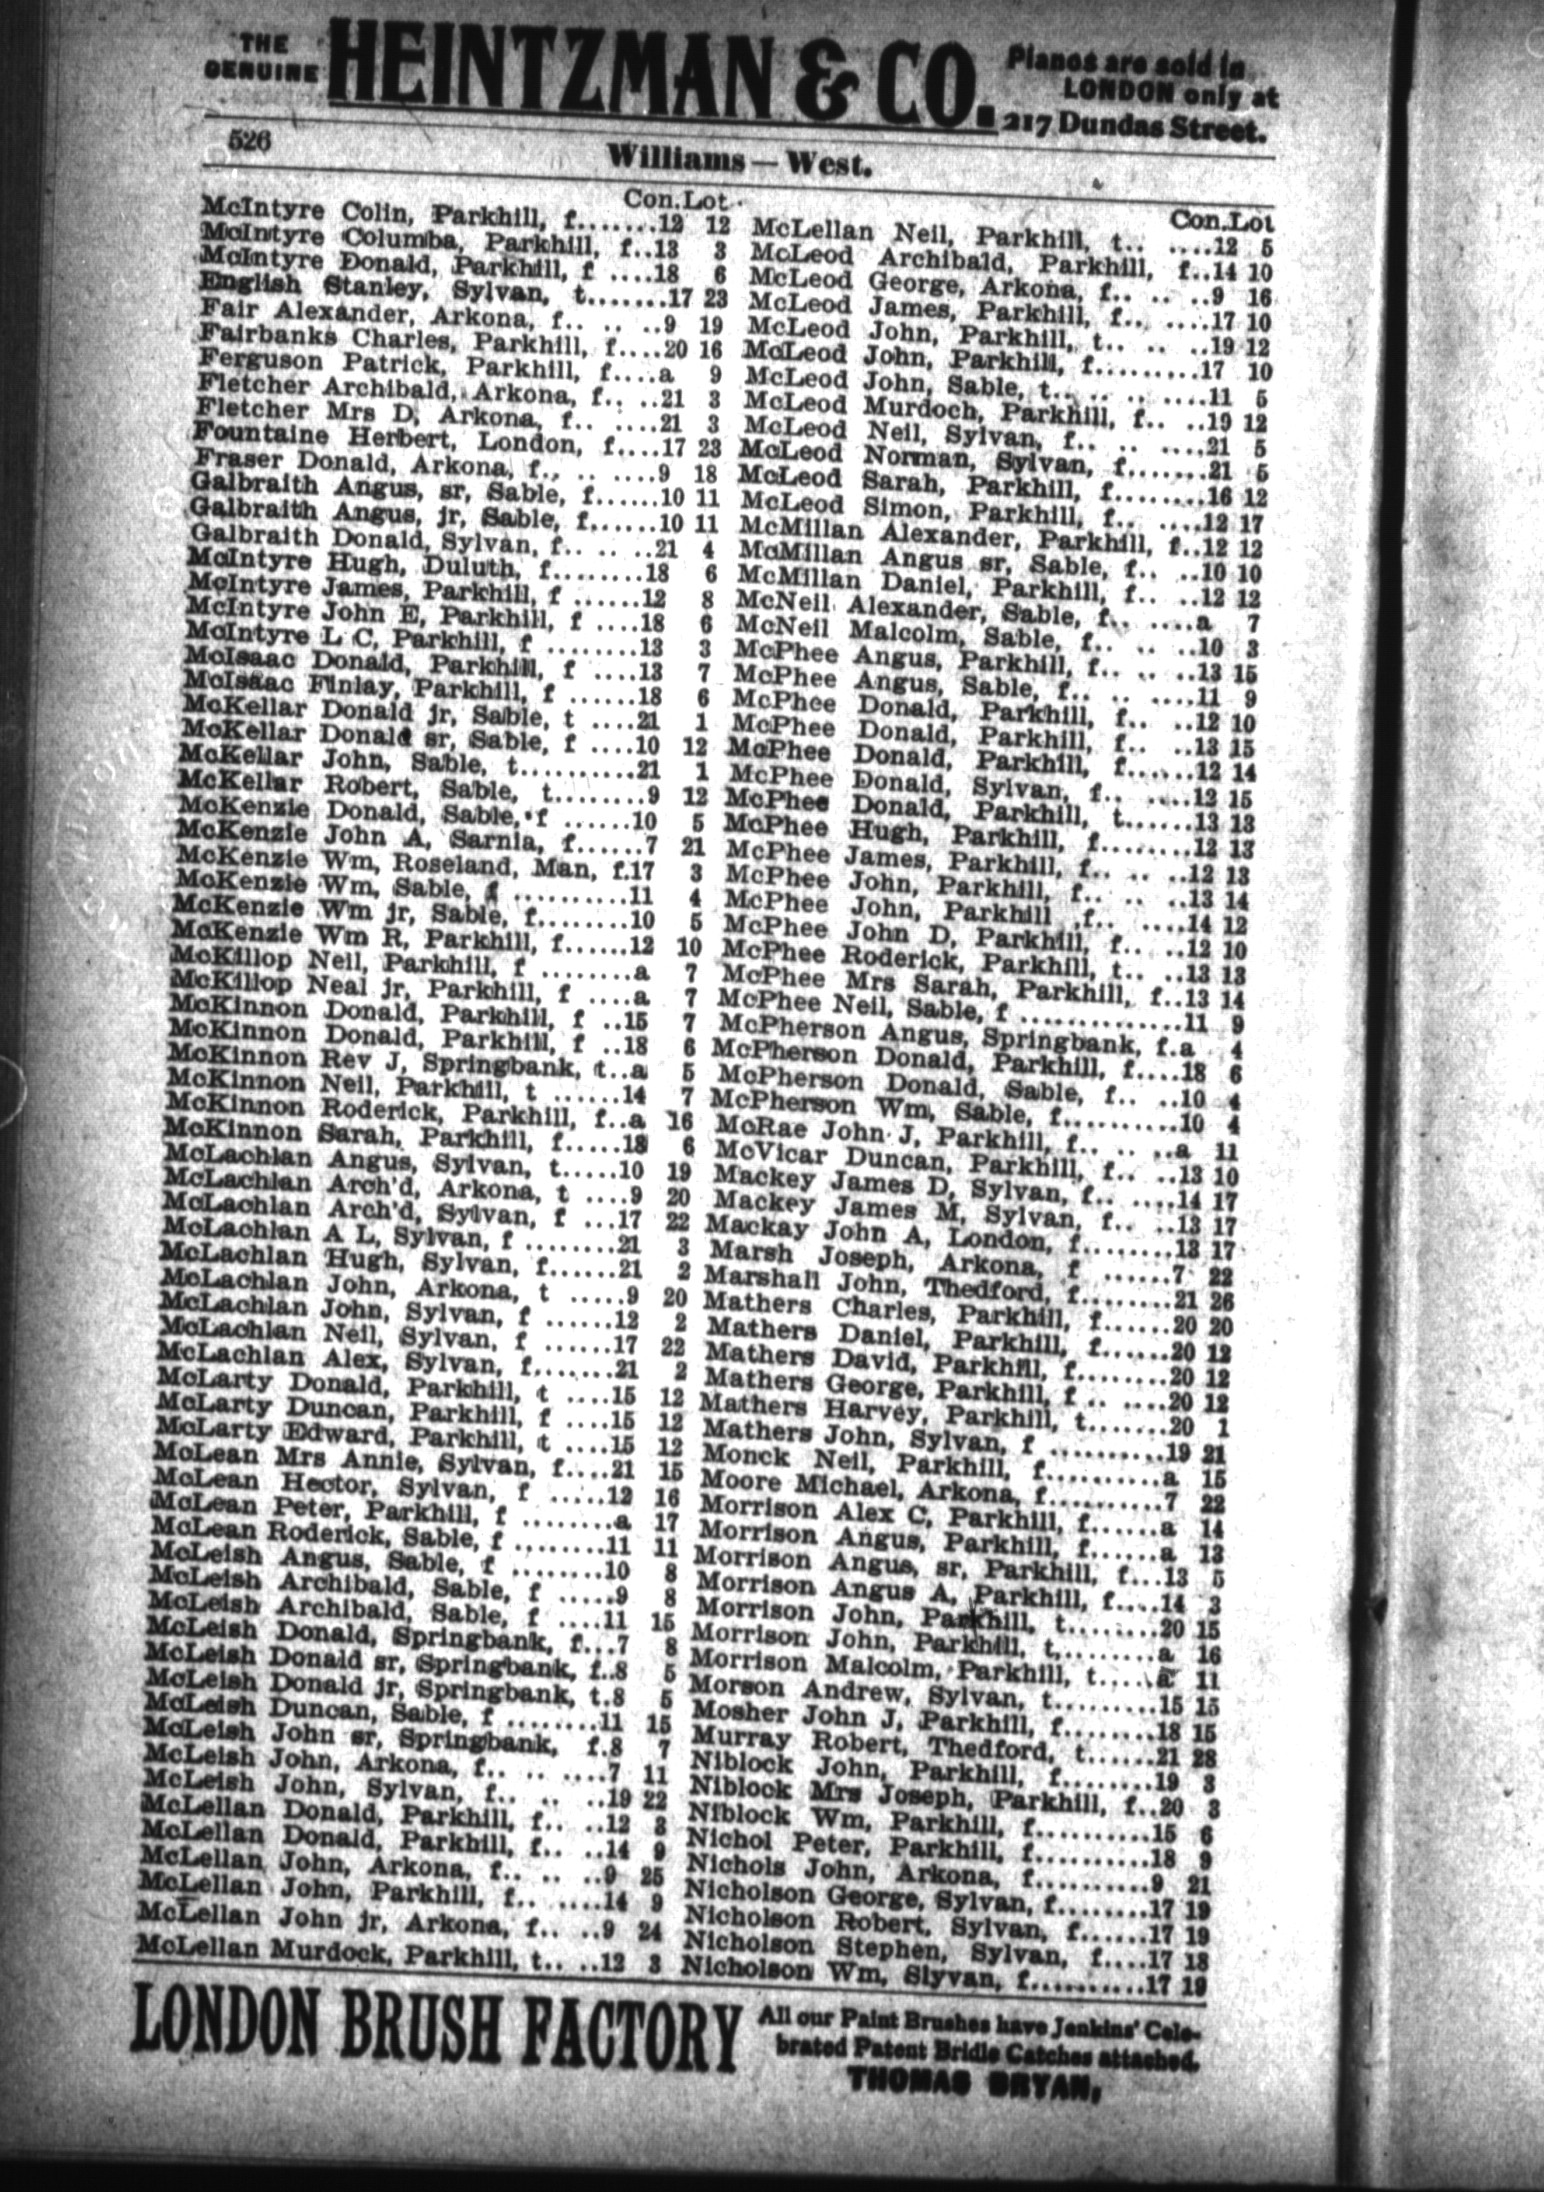 THE GENUINE HEINTZMAN & CO. Pianos are sold in LONDON only at 217 Dundas Street.
526
Williams — West.
Con.Lot
McIntyre Colin, Parkhill, f.......12 12
McIntyre Columba, Parkhill, f..13 3
McIntyre Donald, Parkhill, f ....18 6
English Stanley, Sylvan, t.......17 23
Fair Alexander, Arkona, f.. .. ..9 19
Fairbanks Charles, Parkhill, f....20 16
Ferguson Patrick, Parkhill, f....a 9
Fletcher Archibald, Arkona, f.. ..21 3
Fletcher Mrs D, Arkona, f.. ....21 3
Fountaine Herbert, London, f....17 23
Fraser Donald, Arkona, f.. .. ....9 18
Galbraith Angus, sr, Sable, f......10 11
Galbraith Angus, jr, Sable, f......10 11
Galbraith Donald, Sylvan, f.. .. ..21 4
McIntyre Hugh, Duluth, f........18 6
McIntyre James, Parkhill, f ......12 8
McIntyre John E, Parkhill, f ....18 6
McIntyre L C, Parkhill, f ........13 3
McIsaac Donald, Parkhill, f ....13 7
McIsaac Finlay, Parkhill, f ......18 6
McKellar Donald jr, Sable, t ....21 1
McKellar Donald sr, Sable, f ....10 12
McKellar John, Sable, t..........21 1
McKellar Robert, Sable, t........9 12
McKenzie Donald, Sable, f ......10 5
McKenzie John A, Sarnia, f......7 21
McKenzie Wm, Roseland, Man, f.17 3
McKenzie Wm, Sable, f ..........11 4
McKenzie Wm jr, Sable, f........10 5
McKenzie Wm R, Parkhill, f......12 10
McKillop Neil, Parkhill, f ........a 7
McKillop Neal jr, Parkhill, f ....a 7
McKinnon Donald, Parkhill, f ..15 7
McKinnon Donald, Parkhill, f ..18 6
McKinnon Rev J, Springbank, t..a 5
McKinnon Neil, Parkhill, t ......14 7
McKinnon Roderick, Parkhill, f..a 16
McKinnon Sarah, Parkhill, f.....18 6
McLachlan Angus, Sylvan, t.....10 19
McLachlan Arch'd, Arkona, t ....9 20
McLachlan Arch'd, Sylvan, f ...17 22
McLachlan A L, Sylvan, f ........21 3
McLachlan Hugh, Sylvan, f......21 2
McLachlan John, Arkona, t .....9 20
McLachlan John, Sylvan, f ......12 2
McLachlan Neil, Sylvan, f ......17 22
McLachlan Alex, Sylvan, f.......21 2
McLarty Donald, Parkhill, t ....15 12
McLarty Duncan, Parkhill, f ....15 12
McLarty Edward, Parkhill, t ....15 12
McLean Mrs Annie, Sylvan, f....21 15
McLean Hector, Sylvan, f .....12 16
McLean Peter, Parkhill, f ........a 17
McLean Roderick, Sable, f ........11 11
McLeish Angus, Sable, f ........10 8
McLeish Archibald, Sable, f .....9 8
McLeish Archibald, Sable, f ....11 15
McLeish Donald, Springbank, f...7 8
McLeish Donald sr, Springbank, f..8 5
McLeish Donald jr, Springbank, t.8 5
McLeish Duncan, Sable, f ........11 15
McLeish John sr, Springbank, f.8 7
McLeish John, Arkona, f.. .. ....7 11
McLeish John, Sylvan, f.. .. ..19 22
McLellan Donald, Parkhill, f.. ..12 3
McLellan Donald, Parkhill, f.. ..14 9
McLellan John, Arkona, f.. .. ..9 25
McLellan John, Parkhill, f.. ....14 9
McLellan John jr, Arkona, f.. ..9 24
McLellan Murdock, Parkhill, t.. ..12 3
Con.Lot
McLellan Neil, Parkhill, t.. ....12 5
McLeod Archibald, Parkhill, f..14 10
McLeod George, Arkona, f.. .. ..9 16
McLeod James, Parkhill, f.. ....17 10
McLeod John, Parkhill, t.. .. ..19 12
McLeod John, Parkhill, f.........17 10
McLeod John, Sable, t.. .. .. ....11 5
McLeod Murdoch, Parkhill, f.. ..19 12
McLeod Neil, Sylvan, f.. .. ....21 5
McLeod Norman, Sylvan, f.......21 5
McLeod Sarah, Parkhill, f........16 12
McLeod Simon, Parkhill, f.. ....12 17
McMillan Alexander, Parkhill, f..12 12
McMillan Angus sr, Sable, f.. ..10 10
McMillan Daniel, Parkhill, f.. ..12 12
McNeil Alexander, Sable, f.. ....a 7
McNeil Malcolm, Sable, f.. .. ..10 3
McPhee Angus, Parkhill, f.. .. ..13 15
McPhee Angus, Sable, f.. .. ....11 9
McPhee Donald, Parkhill, f.. ..12 10
McPhee Donald, Parkhill, f.. ..13 15
McPhee Donald, Parkhill, f......12 14
McPhee Donald, Sylvan, f.. ....12 15
McPhee Donald, Parkhill, t......13 13
McPhee Hugh, Parkhill, f........12 13
McPhee James, Parkhill, f.. .. ..12 13
McPhee John, Parkhill, f.. .. ..13 14
McPhee John, Parkhill ,f.. ....14 12
McPhee John D, Parkhill, f.. ..12 10
McPhee Roderick, Parkhill, t.. ..13 13
McPhee Mrs Sarah, Parkhill, f..13 14
McPhee Neil, Sable, f ..............11 9
McPherson Angus, Springbank, f.a 4
McPherson Donald, Parkhill, f....18 6
McPherson Donald, Sable, f.. ..10 4
McPherson Wm, Sable, f..........10 4
McRae John J, Parkhill, f.. .. ..a 11
McVicar Duncan, Parkhill, f.. ..13 10
Mackey James D, Sylvan, f.. ....14 17
Mackey James M, Sylvan, f.. ..13 17
Mackay John A, London, f........13 17
Marsh Joseph, Arkona, f ......7 22
Marshall John, Thedford, f........21 26
Mathers Charles, Parkhill, f......20 20
Mathers Daniel, Parkhill, f......20 12
Mathers David, Parkhill, f........20 12
Mathers George, Parkhill, f .. ....20 12
Mathers Harvey, Parkhill, t.......20 1
Mathers John, Sylvan, f ..........19 21
Monck Neil, Parkhill, f..........a 15
Moore Michael, Arkona, f..........7 22
Morrison Alex C, Parkhill, f......a 14
Morrison Angus, Parkhill, f......a 13
Morrison Angus, sr, Parkhill, f...13 5
Morrison Angus A, Parkhill, f....14 3
Morrison John, Parkhill, t........20 15
Morrison John, Parkhill, t.........a 16
Morrison Malcolm, Parkhill, t.....a 11
Morson Andrew, Sylvan, t........15 15
Mosher John J, Parkhill, f........18 15
Murray Robert, Thedford, t......21 28
Niblock John, Parkhill, f........19 3
Niblock Mrs Joseph, Parkhill, f..20 3
Niblock Wm, Parkhill, f..........15 6
Nichol Peter, Parkhill, f..........18 9
Nichols John, Arkona, f..........9 21
Nicholson George, Sylvan, f........17 19
Nicholson Robert, Sylvan, f......17 19
Nicholson Stephen, Sylvan, f....17 18
Nicholson Wm, Slyvan, f..........17 19
LONDON BRUSH FACTORY All our Paint Brushes have Jenkins' Cele-
brated Patent Bridle Catches attached.
THOMAS BRYAN,